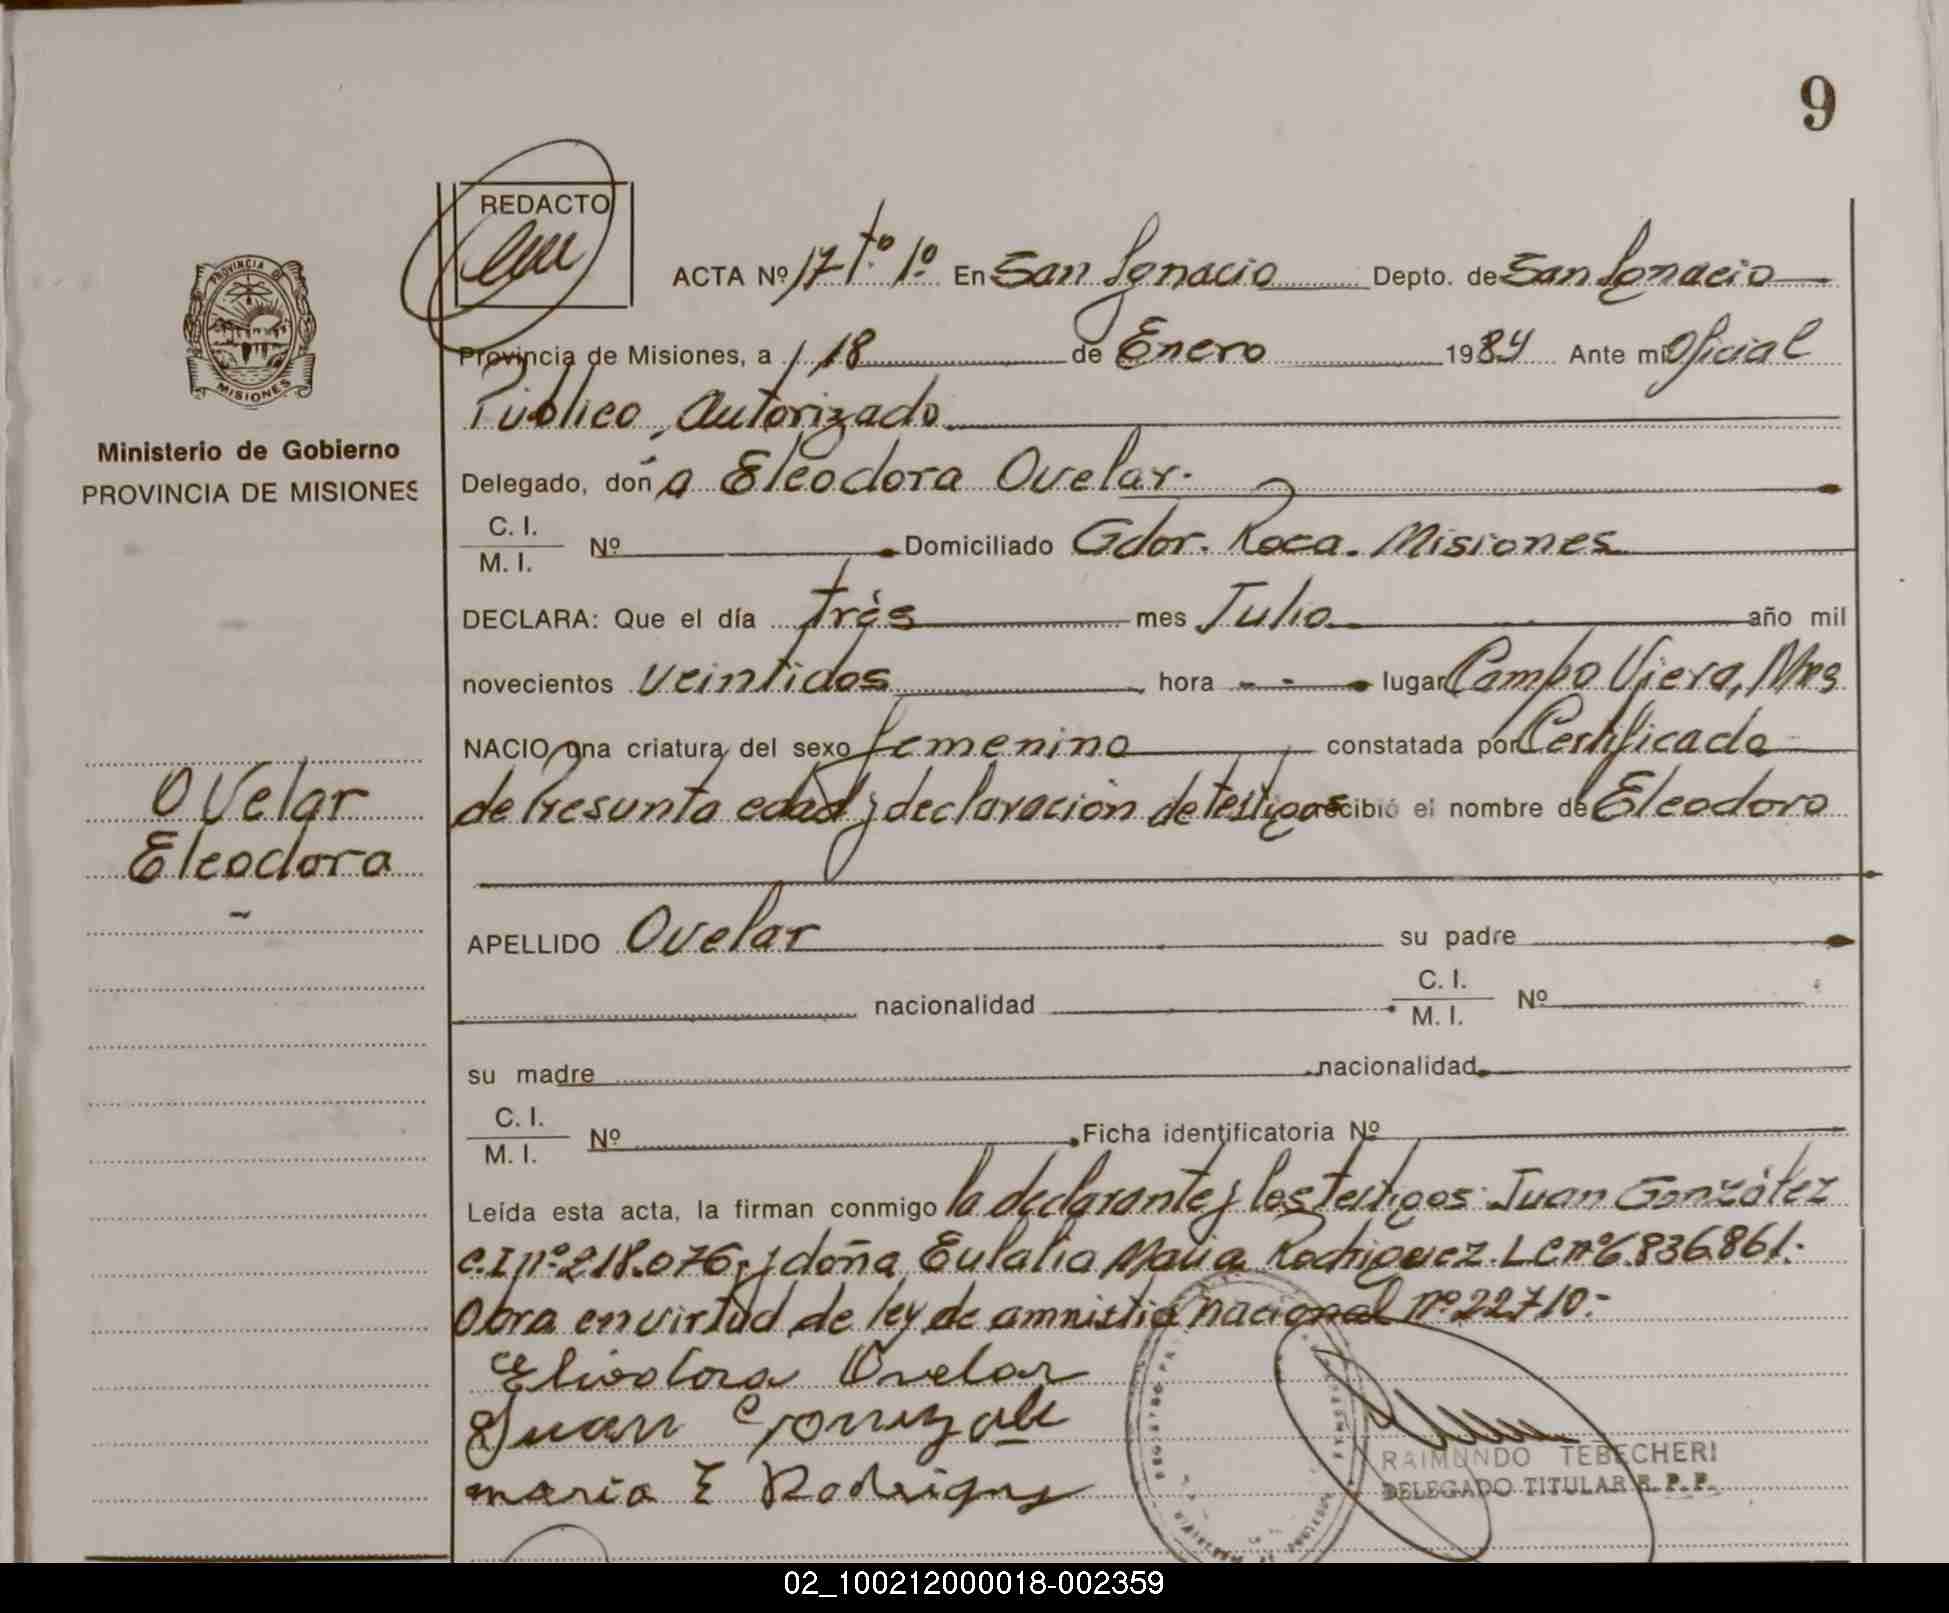 9
REDACTO
PROVINCIA DE
MISIONES
Ministerio de Gobierno
PROVINCIA DE MISIONES
ACTA Nº 17 tº 1º En San Ignacio Depto. de San Ignacio
Provincia de Misiones, a 18 de Enero 1984 Ante mi Oficial
Público, Autorizado
Delegado, doña Eleodora Ovelar.-
C. I.
M. I. Nº Domiciliado Gdor. Roca. Misiones
DECLARA: Que el día trés mes Julio año mil
novecientos veintidos hora - - lugar Campo Viera, Mnes
NACIO una criatura del sexo femenino constatada por Certificado
de Presunta edad y declaración de testigos recibió el nombre de Eleodora
Ovelar
Eleodora
APELLIDO Ovelar su padre
nacionalidad C. I.
M. I. Nº
su madre nacionalidad
C. I.
M. I. Nº Ficha identificatoria Nº
Leída esta acta, la firman conmigo la declarante y los testigos: Juan González
C.I nº 218.076, y doña Eulalia Maria Rodriguez. LC nº 6.836.861.-
Obra en virtud de ley de amnistia nacional nº 22710.-
Eliodora Ovelar
Juan Gonzale
maria E Rodriguz
RAIMUNDO TEBECHERI
DELEGADO TITULAR R. P. P.
02_100212000018-002359